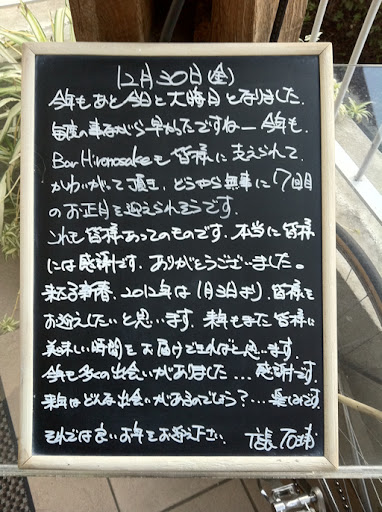 12月30日(金)
今年もあと今日と大晦日となりました.
毎度の事ながら早かったですねー 今年も.
Bar Hironosukeも皆様に支えられて.
かわいがって頂き、どうやら無事に7回目
のお正月を迎えられそうです.
これも皆様あってのものです. 本当に皆様
には感謝です. ありがとうございました。
来たる新春、2012年は1月3日より 皆様を
お迎えしたいと思います. 来年もまた皆様に
美味しい時間をお届けできればと思います.
今年も多くの出会いがありました... 感謝です
来年はどんな出会いがあるのでしょう?... 楽しみです.
それでは良いお年をお迎え下さい. 店長